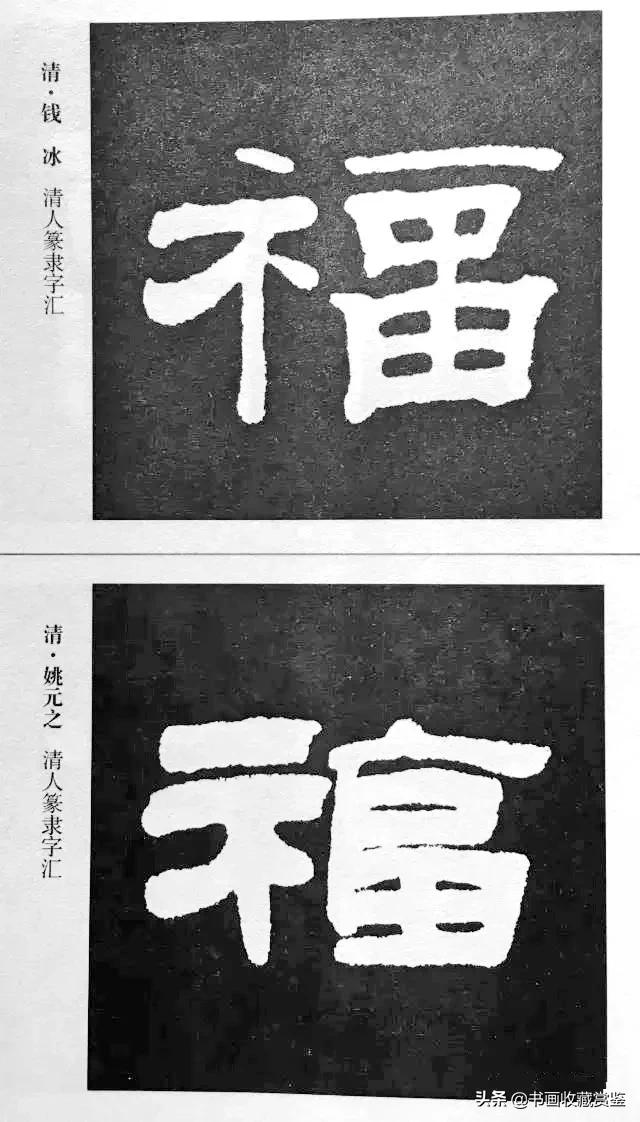 清·钱 冰 清人篆隶字汇
福
清·姚元之 清人篆隶字汇
福
头条 @书画收藏赏鉴